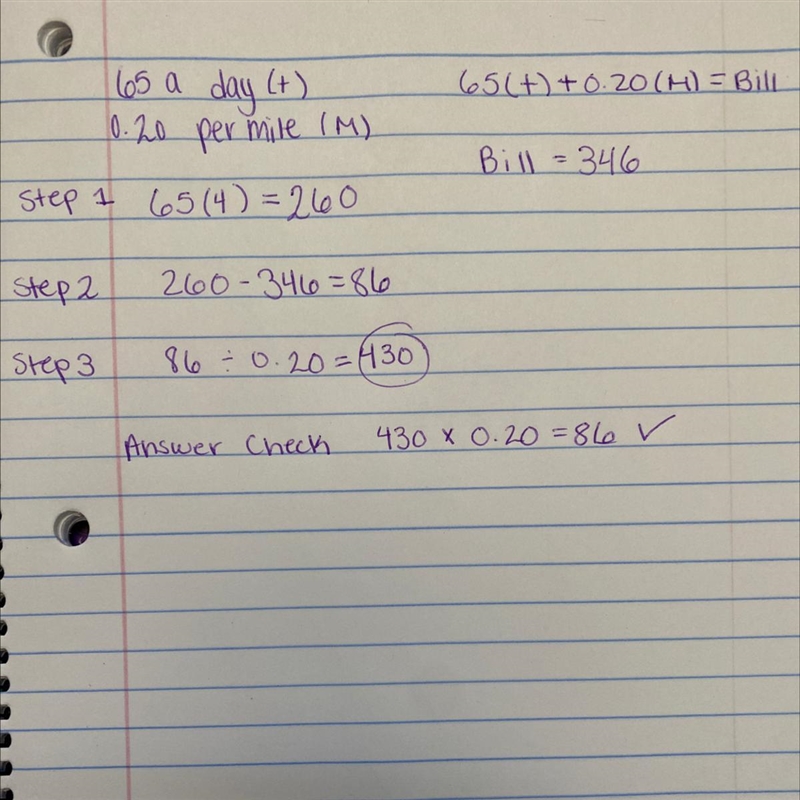 65 a day (t)
65(t) + 0.20(M) = Bill
0.20 per mile (M)
Bill = 346
Step 1 65(4) = 260
Step 2 260 - 346 = 86
Step 3 86 ÷ 0.20 = 430
Answer Check 430 x 0.20 = 86 ✓